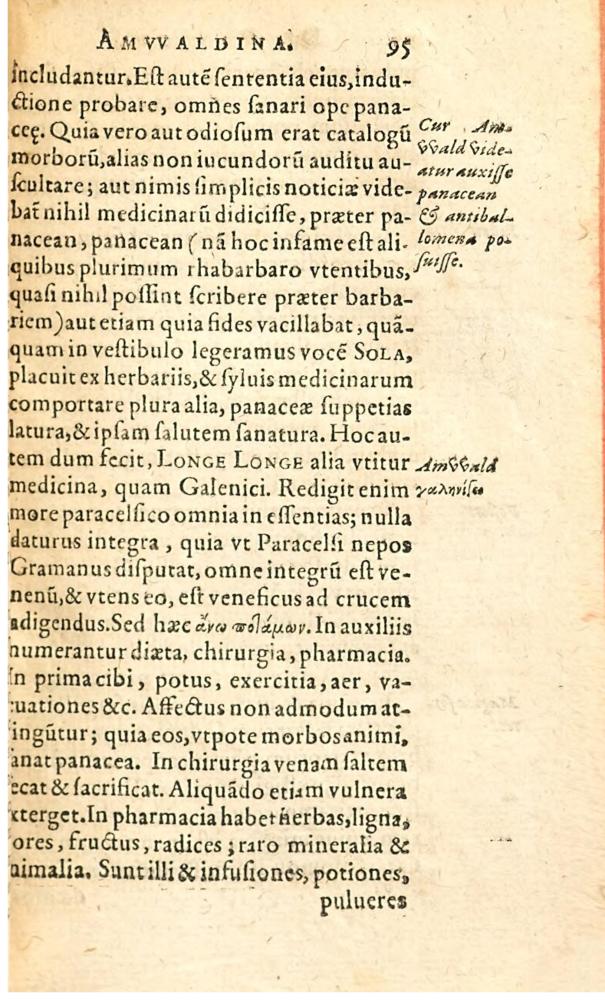 AMVVALDINA. 95
includantur. Est autē sententia eius, indu-
ctione probare, omnes sanari ope pana-
ceę. Quia vero aut odiosum erat catalogū
morborū, alias non iucundorū auditu au-
scultare; aut nimis simplicis noticiæ vide-
bat nihil medicinarū didicisse, præter pa-
nacean, panacean (nā hoc infame est ali-
quibus plurimum rhabarbaro vtentibus,
quasi nihil possint scribere præter barba-
riem) aut etiam quia fides vacillabat, quā-
quam in vestibulo legeramus vocē SOLA,
placuit ex herbariis, & syluis medicinarum
comportare plura alia, panaceæ suppetias
latura, & ipsam salutem sanatura. Hoc au-
tem dum fecit, LONGE LONGE alia vtitur
medicina, quam Galenici. Redigit enim
more paracelsico omnia in essentias; nulla
daturus integra, quia vt Paracelsi nepos
Gramanus disputat, omne integrū est ve-
nenū, & vtens eo, est veneficus ad crucem
adigendus. Sed hæc ἄνω ποταμῶν. In auxiliis
numerantur diæta, chirurgia, pharmacia.
In prima cibi, potus, exercitia, aer, va-
cuationes &c. Affectus non admodum at-
ingūtur; quia eos, vtpote morbos animi,
anat panacea. In chirurgia venam saltem
ecat & sacrificat. Aliquādo etiam vulnera
xterget. In pharmacia habet herbas, ligna,
ores, fructus, radices; raro mineralia &
nimalia. Sunt illi & infusiones, potiones,
pulueres
Cur Am-
VVald vide-
atur auxisse
panacean
& antibal-
lomena po-
suisse.
AmVVald
γαληνίζει